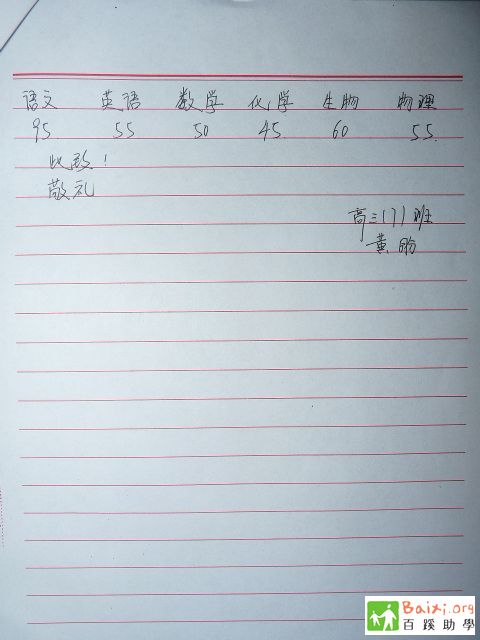 语文 英语 数学 化学 生物 物理
95. 55 50 45. 60 55.
此致!
敬礼
高三171班
黄盼
Baixi.org
百蹊助學